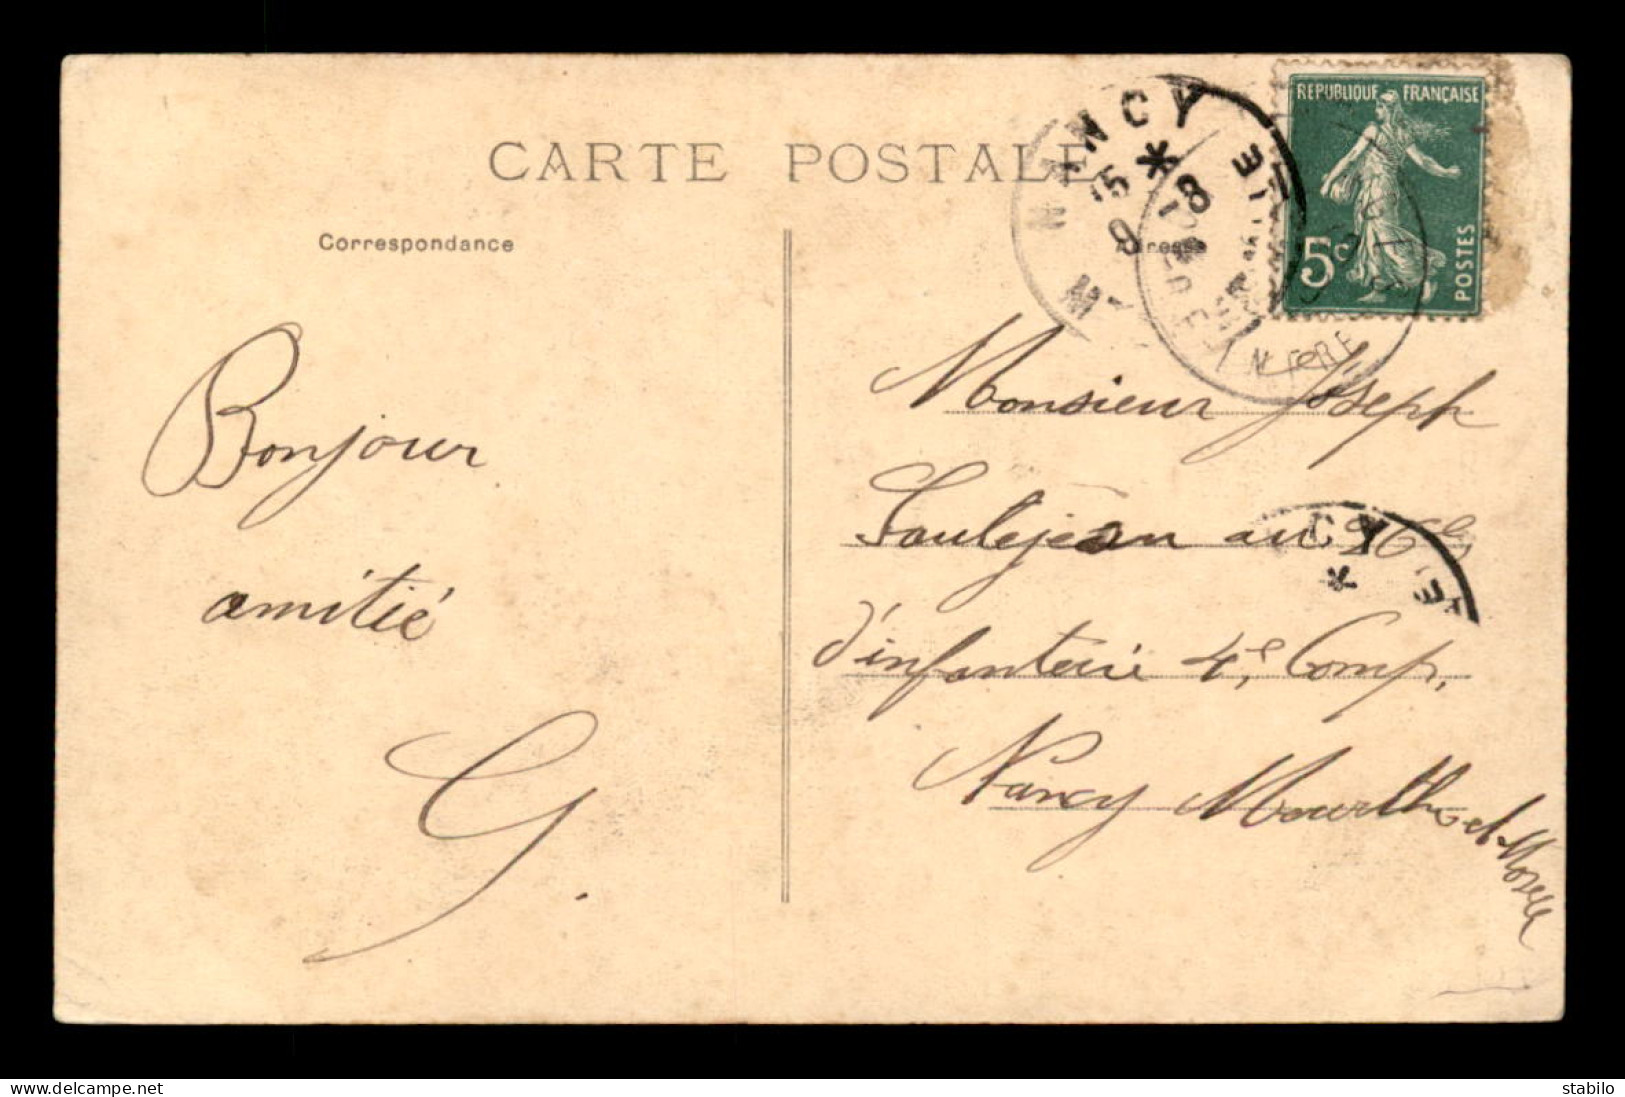 CARTE POSTALE
Correspondance
REPUBLIQUE FRANÇAISE
5c
POSTES
NANCY
15 * 8
Bonjour
amitié
G.
Monsieur Joseph
Soulejean au 26e
d'infanterie 4e Comp,
Nancy Meurthe et Moselle
delcampe.net
stabilo